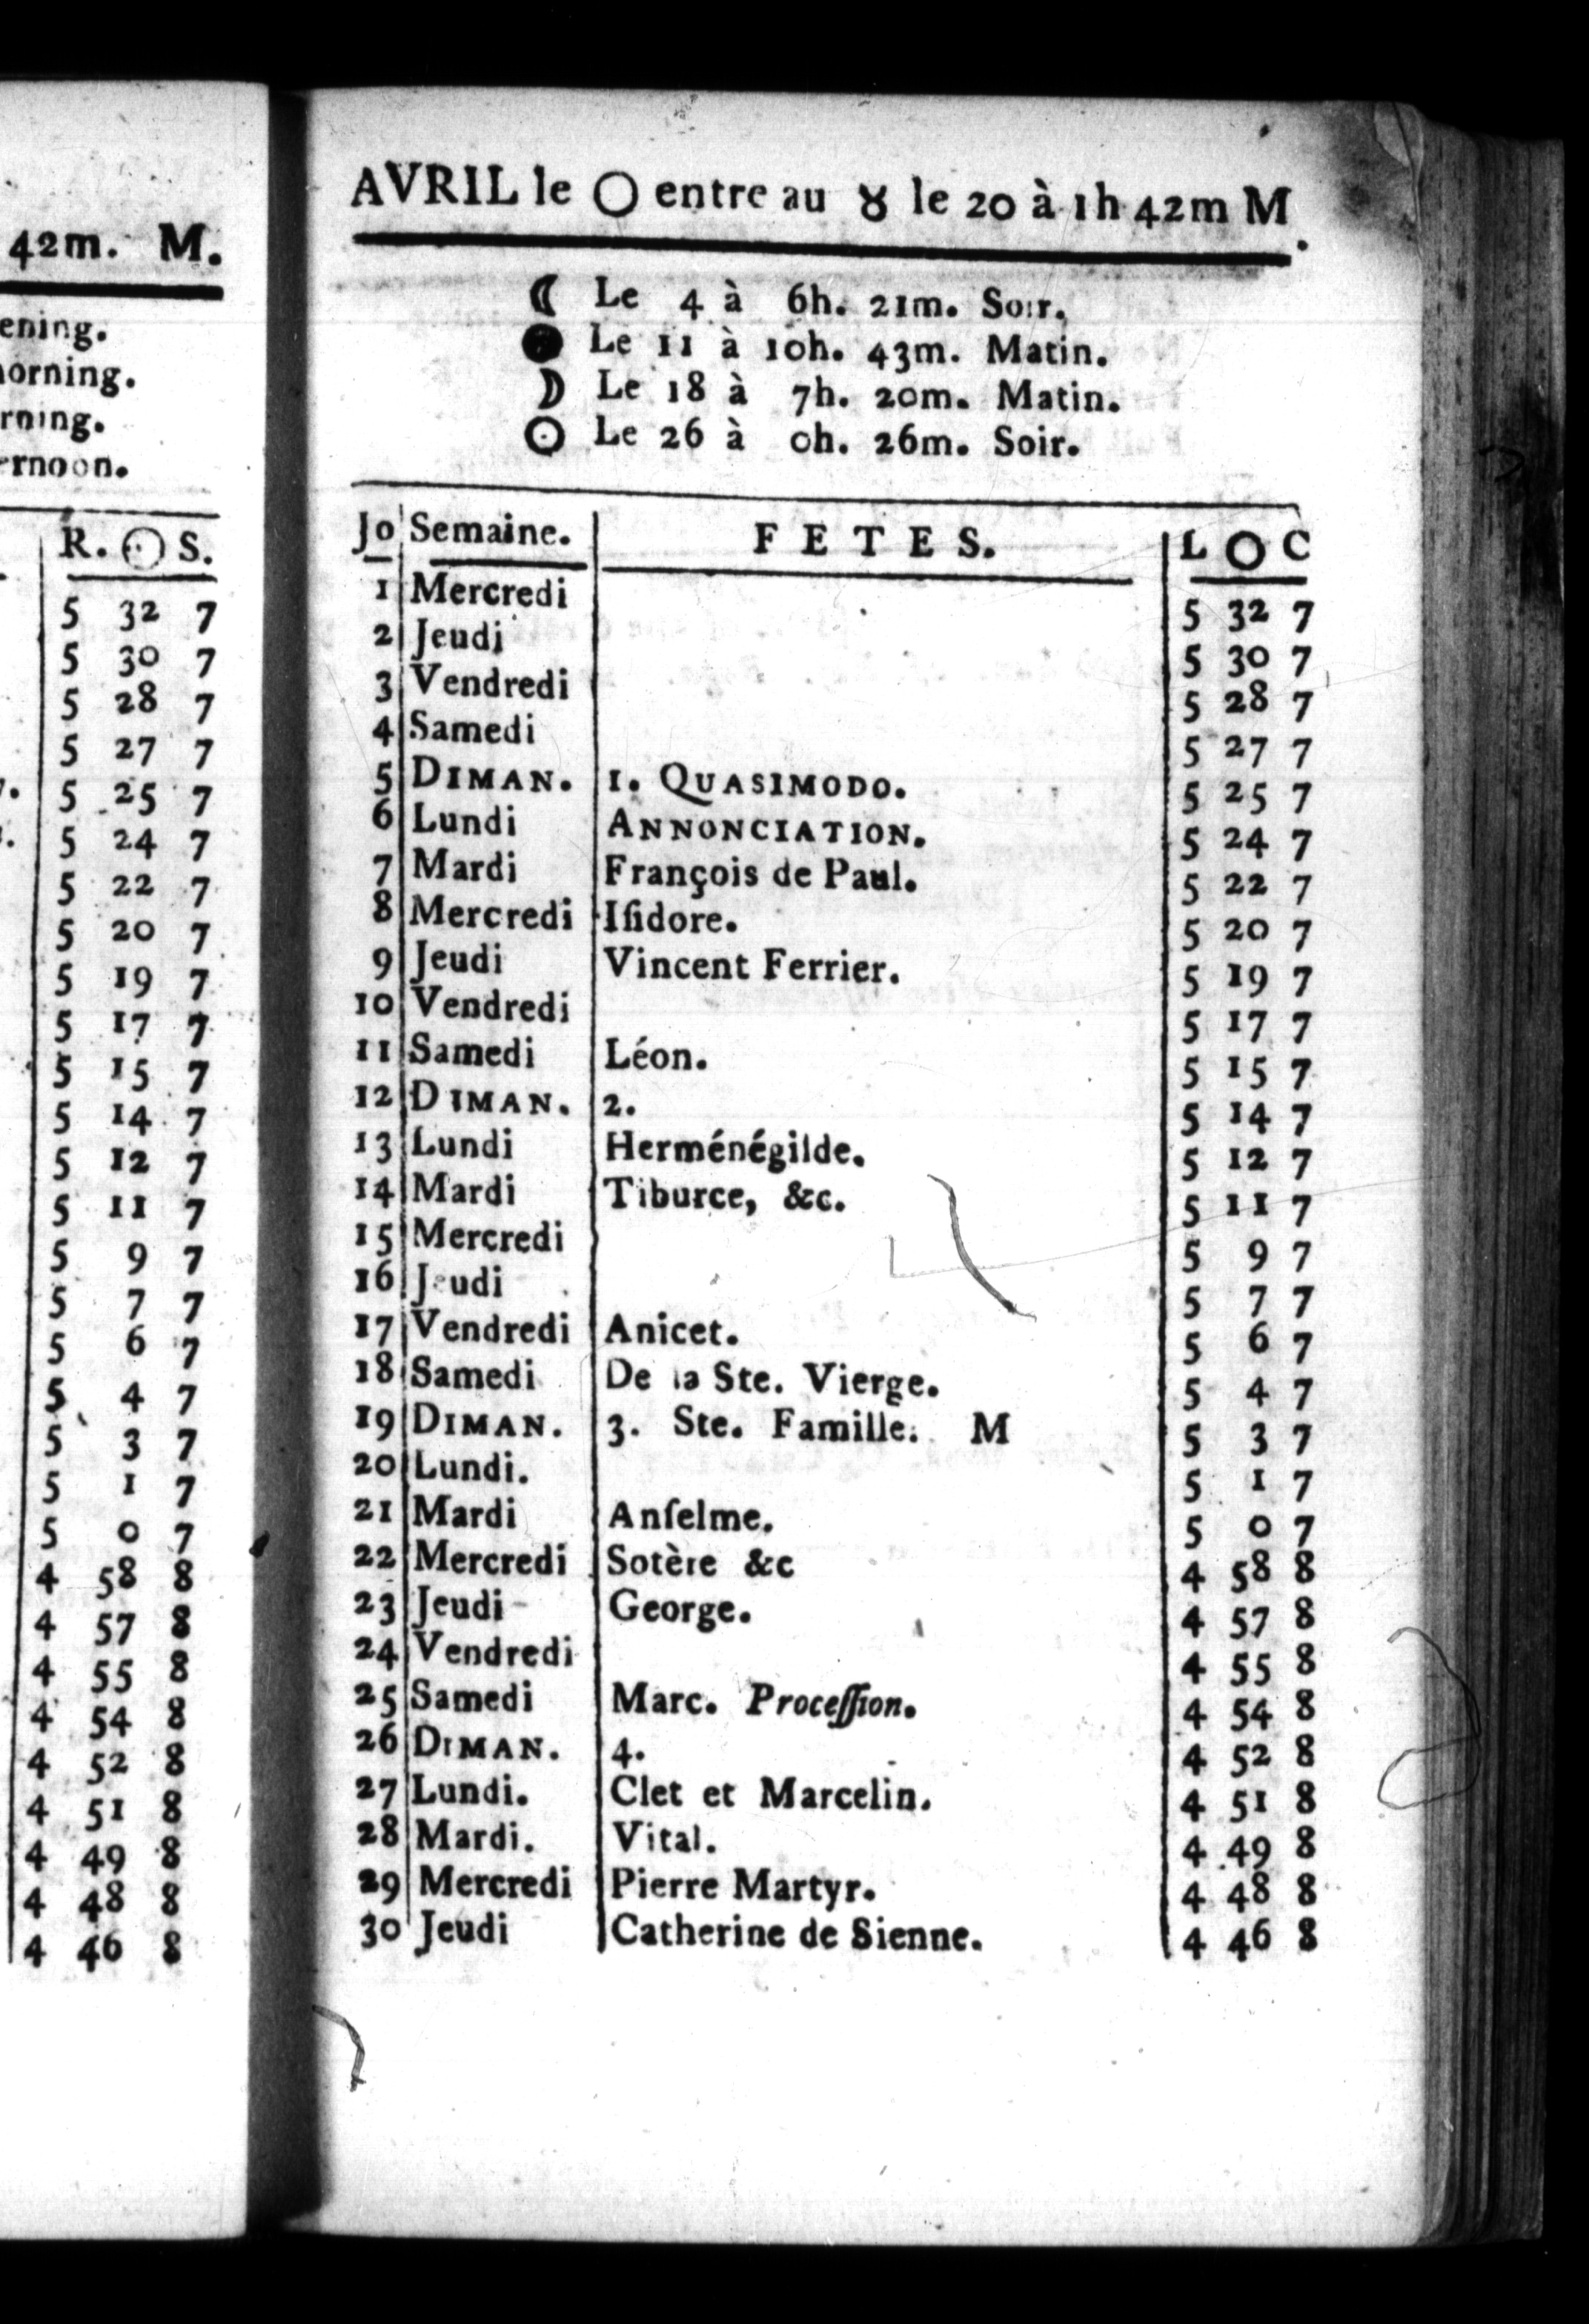 42m. M.
ening.
orning.
rning.
ernoon.
R. ☉ S.
5 32 7
5 30 7
5 28 7
5 27 7
5 25 7
5 24 7
5 22 7
5 20 7
5 19 7
5 17 7
5 15 7
5 14 7
5 12 7
5 11 7
5 9 7
5 7 7
5 6 7
5 4 7
5 3 7
5 1 7
5 0 7
4 58 8
4 57 8
4 55 8
4 54 8
4 52 8
4 51 8
4 49 8
4 48 8
4 46 8
AVRIL le ◯ entre au ♉ le 20 à 1h 42m M.
☾ Le 4 à 6h. 21m. Soir.
● Le 11 à 10h. 43m. Matin.
☽ Le 18 à 7h. 20m. Matin.
☉ Le 26 à 0h. 26m. Soir.
Jo Semaine. FETES. L ◯ C
1 Mercredi 5 32 7
2 Jeudi 5 30 7
3 Vendredi 5 28 7
4 Samedi 5 27 7
5 DIMAN. 1. QUASIMODO. 5 25 7
6 Lundi ANNONCIATION. 5 24 7
7 Mardi François de Paul. 5 22 7
8 Mercredi Iſidore. 5 20 7
9 Jeudi Vincent Ferrier. 5 19 7
10 Vendredi 5 17 7
11 Samedi Léon. 5 15 7
12 DIMAN. 2. 5 14 7
13 Lundi Herménégilde. 5 12 7
14 Mardi Tiburce, &c. 5 11 7
15 Mercredi 5 9 7
16 Jeudi 5 7 7
17 Vendredi Anicet. 5 6 7
18 Samedi De la Ste. Vierge. 5 4 7
19 DIMAN. 3. Ste. Famille. M 5 3 7
20 Lundi. 5 1 7
21 Mardi Anſelme. 5 0 7
22 Mercredi Sotère &c 4 58 8
23 Jeudi George. 4 57 8
24 Vendredi 4 55 8
25 Samedi Marc. Proceſſion. 4 54 8
26 DIMAN. 4. 4 52 8
27 Lundi. Clet et Marcelin. 4 51 8
28 Mardi. Vital. 4 49 8
29 Mercredi Pierre Martyr. 4 48 8
30 Jeudi Catherine de Sienne. 4 46 8